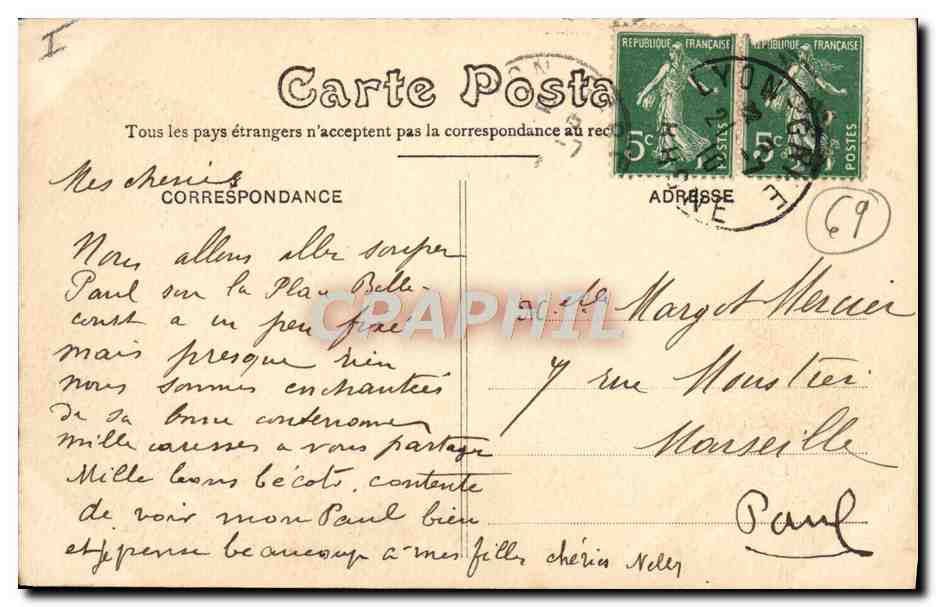 I
Carte Posta
Tous les pays étrangers n'acceptent pas la correspondance au rec
REPUBLIQUE FRANÇAISE
5c
POSTES
REPUBLIQUE FRANÇAISE
5c
POSTES
LYON
RHONE
Mes cheries
CORRESPONDANCE
ADRESSE
69
Nous allons aller souper
Paul sur la Place Belle-
a un peu
mais presque rien
nous sommes enchantées
de sa bonne contenance
mille caresses a vous partager
Mille bons bécots, contente
de voir mon Paul bien
et je pense beaucoup à mes filles chéries Nelly
Margot Mercier
7 rue Moustier
Marseille
Paul
CRAPHIL